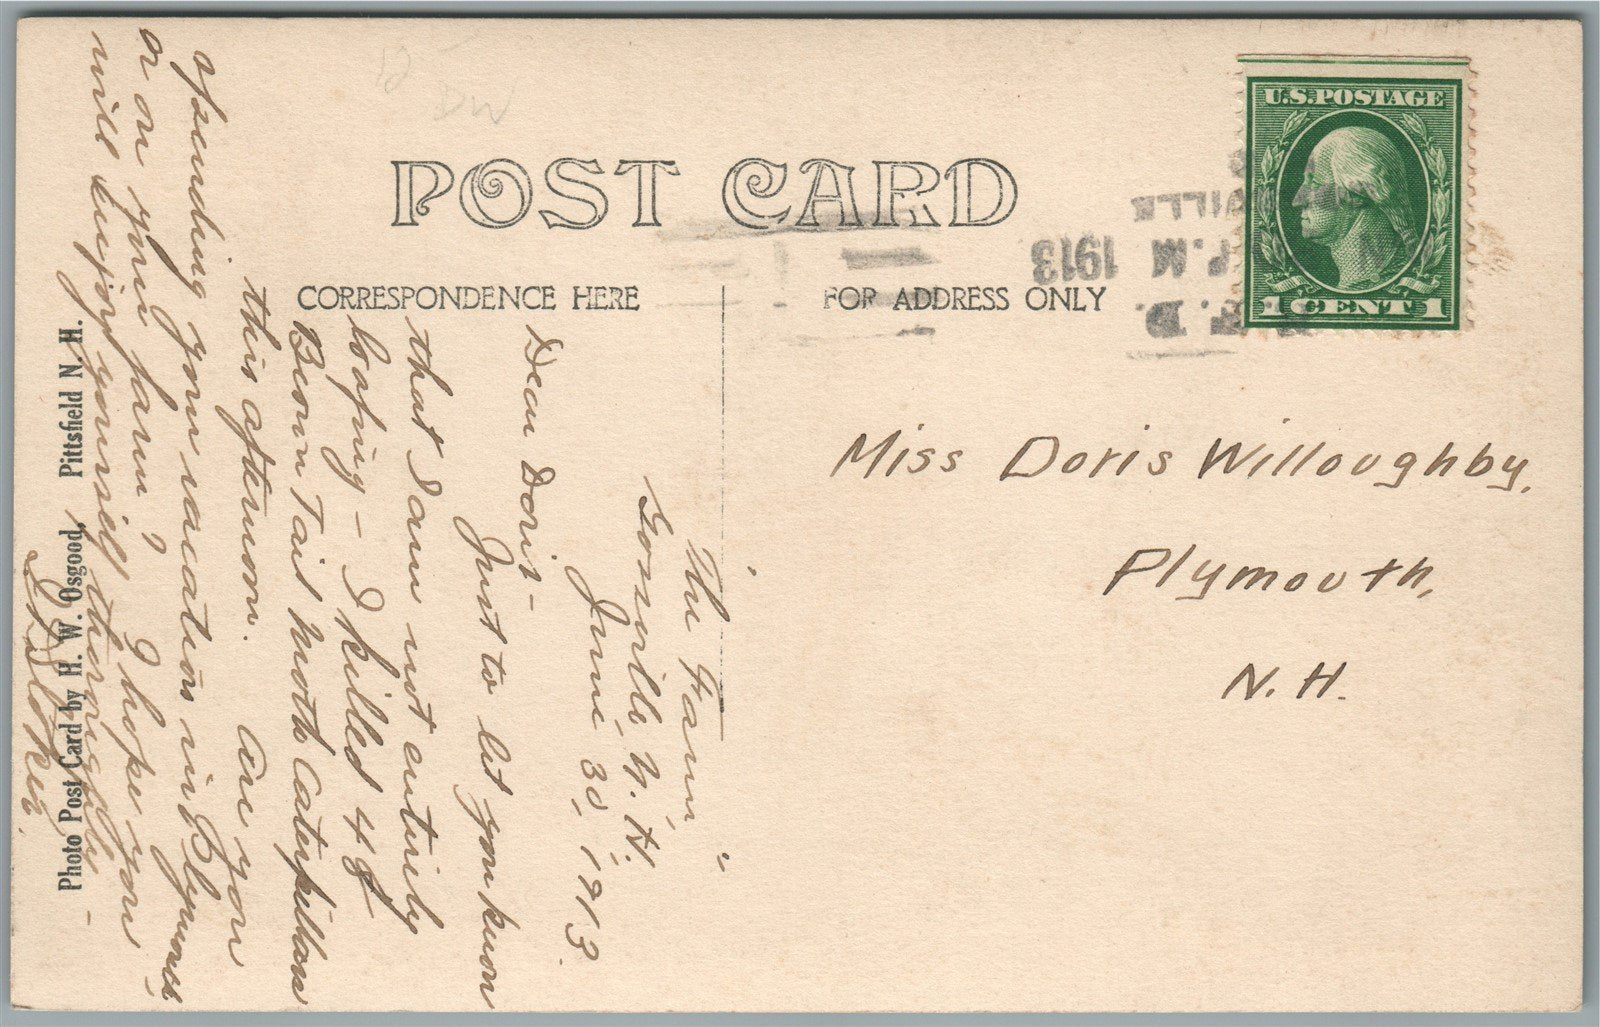 POST CARD
CORRESPONDENCE HERE
FOR ADDRESS ONLY
U.S. POSTAGE
1 CENT 1
P.M 1913
VILLE
Miss Doris Willoughby,
Plymouth,
N. H.
"The Farm,"
Gossville, N. H.
June 30, 1913.
Dear Doris-
Just to let you know
that I am not entirely
loafing - I killed 48
Brown Tail moth caterpillars
this afternoon. Are you
spending your vacation in Plymouth
or on your farm? I hope you
will enjoy yourself thoroughly -
Photo Post Card by H. W. Osgood, Pittsfield N. H.